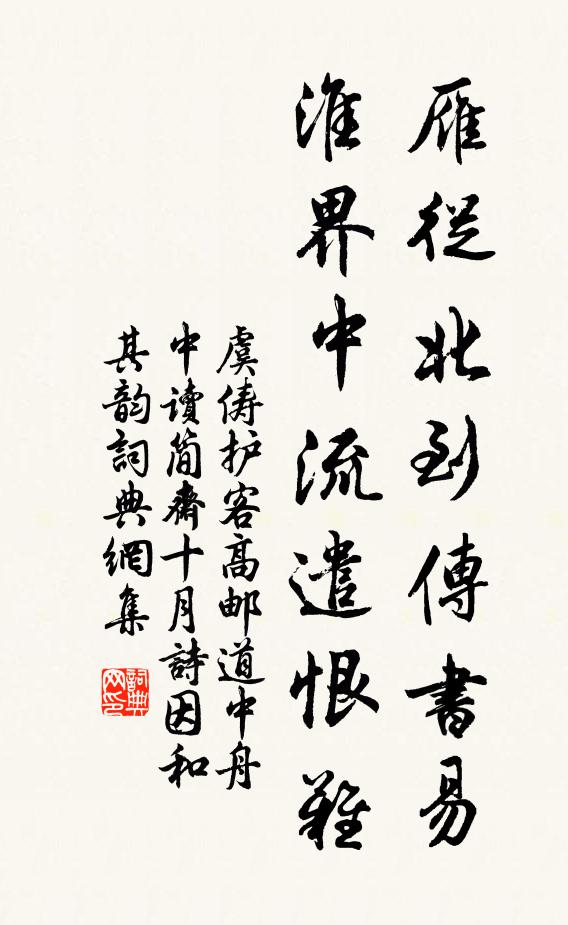 雁從北到傳書易
淮界中流遣恨難
虞俦护客高邮道中舟
中讀简齋十月詩因和
其韵詞典網集
詞典网印